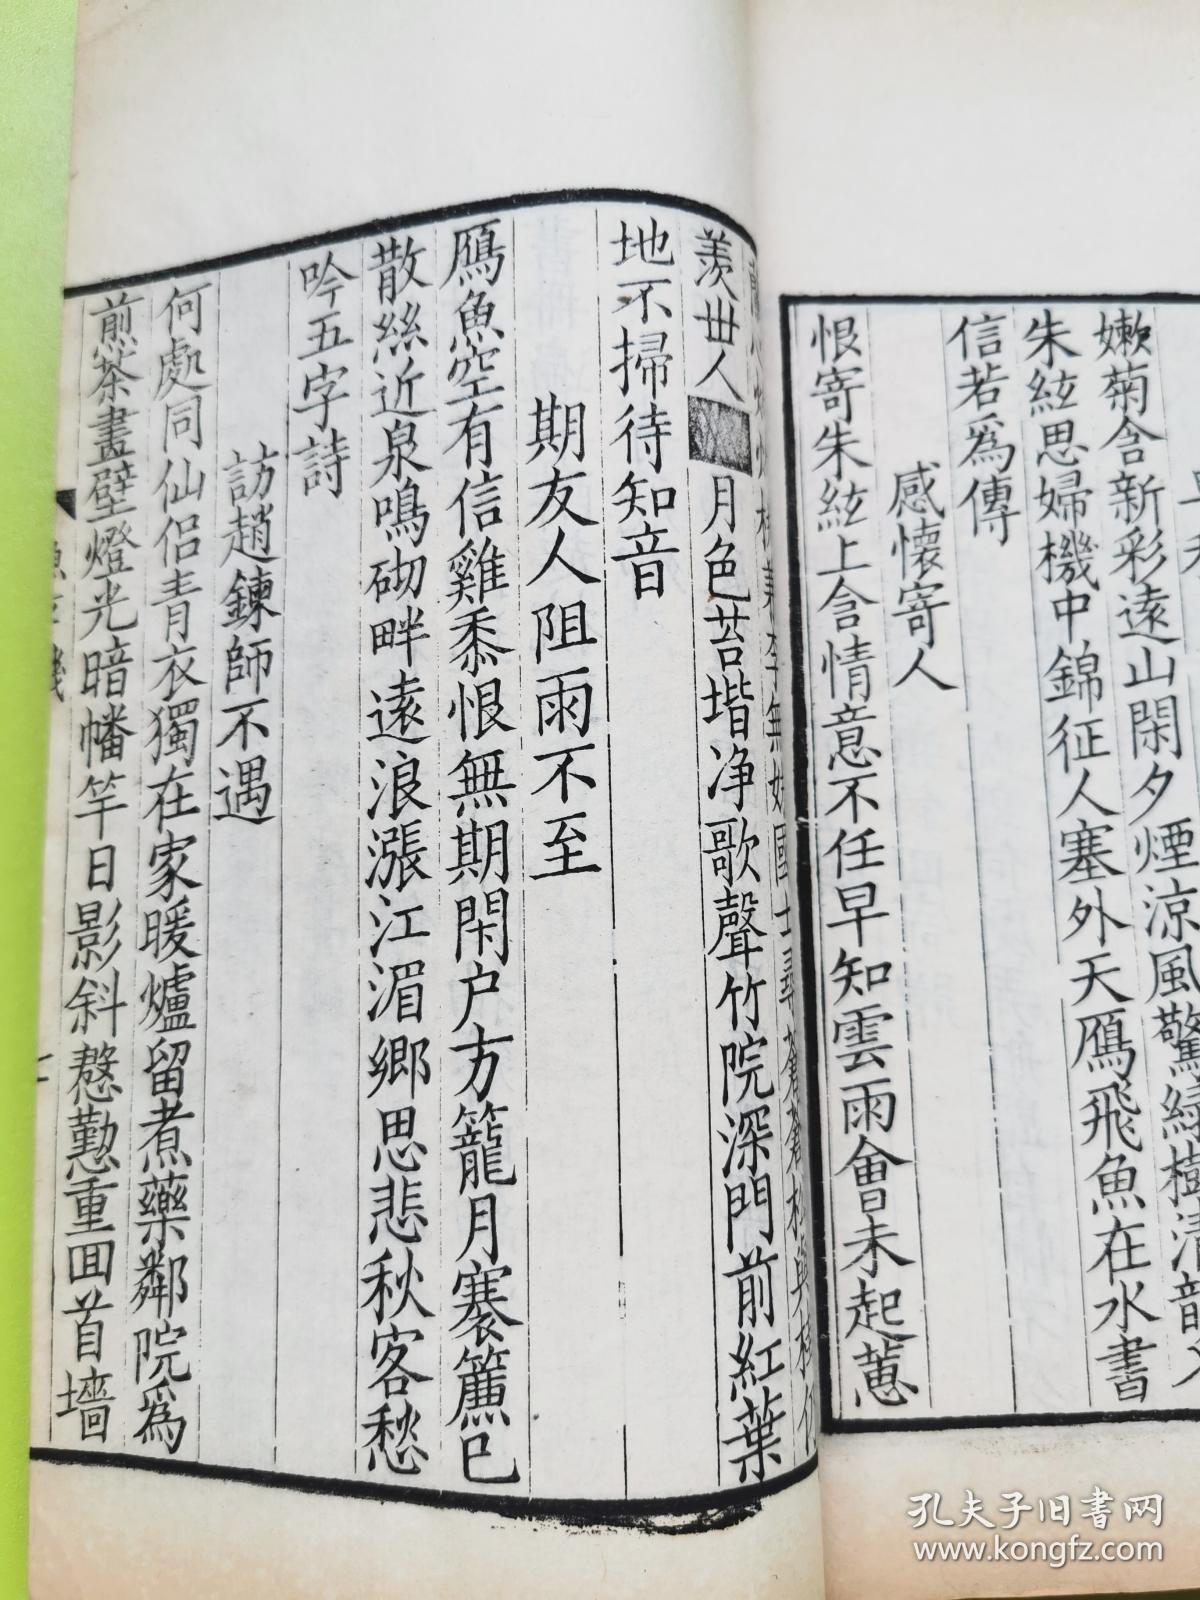 嫩菊含新彩遠山閑夕煙涼風驚綠樹清韻入
朱絃思婦機中錦征人塞外天鴈飛魚在水書
信若爲傳
感懷寄人
恨寄朱絃上含情意不任早知雲雨會未起蕙
羨世人
月色苔堦净歌聲竹院深門前紅葉
地不掃待知音
期友人阻雨不至
鴈魚空有信雞黍恨無期閑户方籠月褰簾已
散絲近泉鳴砌畔遠浪漲江湄鄉思悲秋客愁
吟五字詩
訪趙鍊師不遇
何處同仙侶青衣獨在家暖爐留煮藥鄰院爲
煎茶畫壁燈光暗幡竿日影斜慇懃重囬首墻
孔夫子旧书网
www.kongfz.com